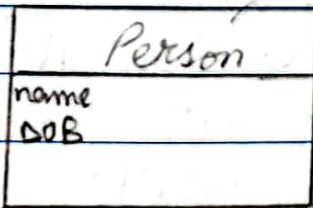 Person
name
DOB